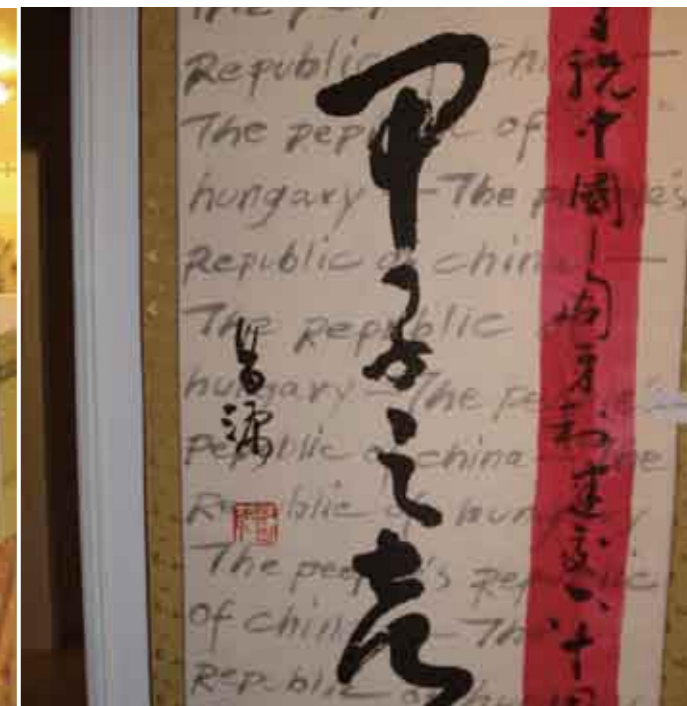 Republic of Chi —
The pepublic of
hungary — The people's
Republic of china —
The Republic
hungary — The people's
Republic of china — The
Republic of hungary
The people's Republic
of china — The
Republic of hungary
祝中國—匈牙利建交六十周
甲子之喜